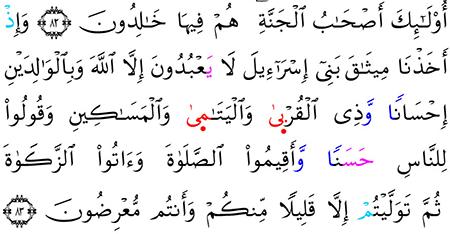 أُوْلَـٰٓئِكَ أَصْحَـٰبُ الْجَنَّةِ هُمْ فِيهَا خَـٰلِدُونَ ﴿٨٢﴾ وَإِذْ
أَخَذْنَا مِيثَـٰقَ بَنِىٓ إِسْرَٰٓءِيلَ لَا يَعْبُدُونَ إِلَّا ٱللَّهَ وَبِٱلْوَٰلِدَيْنِ
إِحْسَانًا وَّذِى ٱلْقُرْبَىٰ وَٱلْيَتَـٰمَىٰ وَٱلْمَسَـٰكِينِ وَقُولُوا۟
لِلنَّاسِ حَسَنًا وَّأَقِيمُوا۟ ٱلصَّلَوٰةَ وَءَاتُوا۟ ٱلزَّكَوٰةَ
ثُمَّ تَوَلَّيْتُمْ إِلَّا قَلِيلًا مِّنكُمْ وَأَنتُم مُّعْرِضُونَ ﴿٨٣﴾